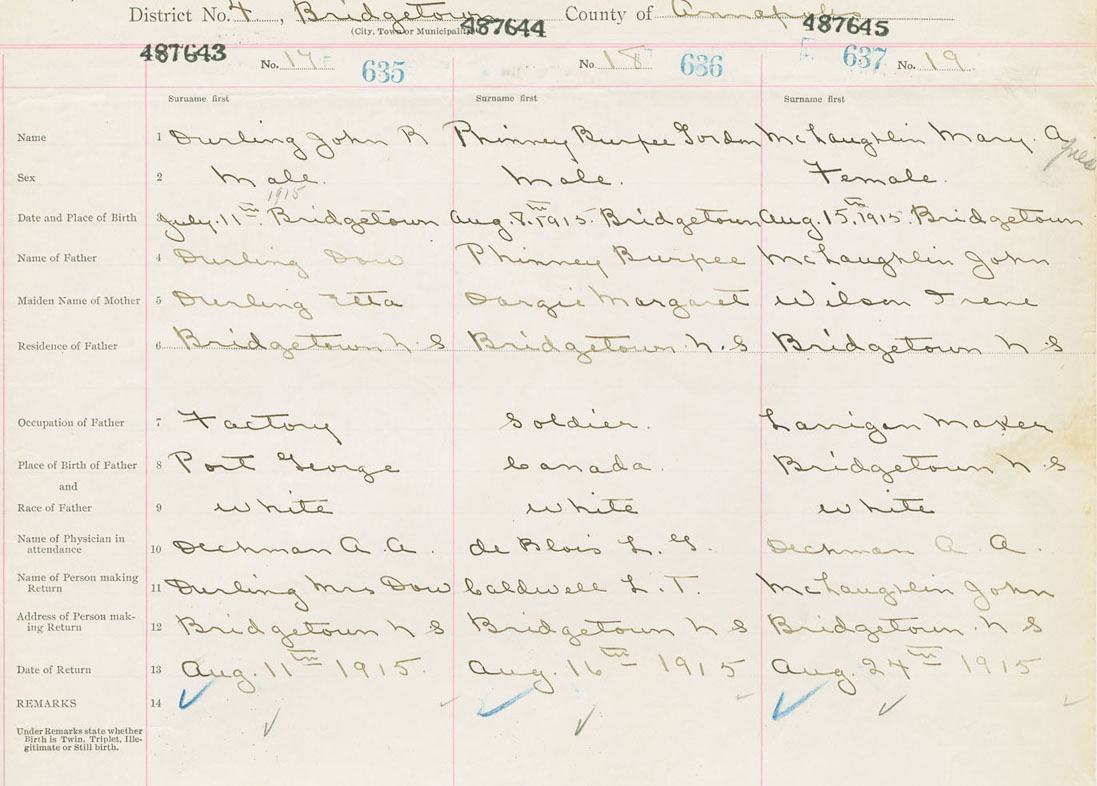 District No. 4, Bridgetown County of Annapolis
(City, Town or Municipality)
487643 487644 487645
No. 17 635 No 18 636 637 No. 19
Surname first Surname first Surname first
Name 1 Durling John R Phinney Burpee Gordon McLaughlin Mary. Agnes
Sex 2 Male. Male. Female.
1915
Date and Place of Birth 3 July. 11th Bridgetown Aug. 8th 1915 Bridgetown Aug. 15th 1915. Bridgetown
Name of Father 4 Durling Dow Phinney Burpee McLaughlin John
Maiden Name of Mother 5 Durling Etta Dargie Margaret Wilson Irene
Residence of Father 6 Bridgetown N.S Bridgetown N.S Bridgetown N S
Occupation of Father 7 Factory Soldier. Larrigan Maker
Place of Birth of Father 8 Port George Canada. Bridgetown N.S
and
Race of Father 9 White White White
Name of Physician in
attendance 10 Dechman A. A. de Blois L. G. Dechman A. A.
Name of Person making
Return 11 Durling Mrs Dow Caldwell L. T. McLaughlin John
Address of Person mak-
ing Return 12 Bridgetown N S Bridgetown N S Bridgetown. N S
Date of Return 13 Aug. 11th 1915. Aug. 16th 1915 Aug. 24th 1915
REMARKS 14
Under Remarks state whether
Birth is Twin, Triplet, Ille-
gitimate or Still birth.